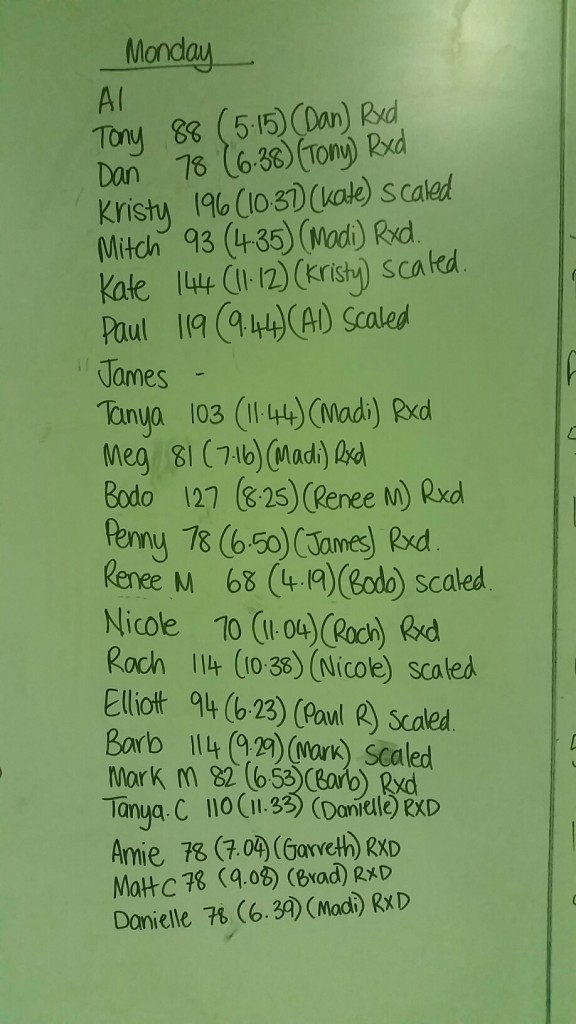 Monday
Al
Tony 88 (5.15) (Dan) Rxd
Dan 78 (6.38) (Tony) Rxd
Kristy 196 (10.37) (Kate) scaled
Mitch 93 (4.35) (Madi) Rxd.
Kate 144 (11.12) (Kristy) scaled.
Paul 119 (9.44) (Al) Scaled
James -
Tanya 103 (11.44) (Madi) Rxd
Meg 81 (7.16) (Madi) Rxd
Bodo 127 (8.25) (Renee M) Rxd
Penny 78 (6.50) (James) Rxd.
Renee M 68 (4.19) (Bodo) scaled.
Nicole 70 (11.04) (Rach) Rxd
Rach 114 (10.38) (Nicole) scaled
Elliott 94 (6.23) (Paul R) Scaled.
Barb 114 (9.29) (Mark) Scaled
Mark M 82 (6.53) (Barb) Rxd
Tanya.C 110 (11.33) (Danielle) RXD
Amie 78 (7.04) (Garreth) RXD
Matt C 78 (9.08) (Brad) RXD
Danielle 78 (6.39) (Madi) RXD